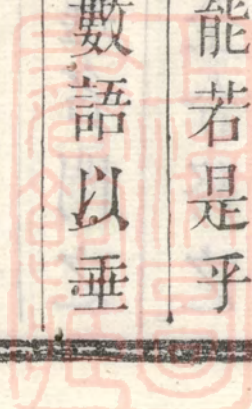 能若是乎
數語以垂